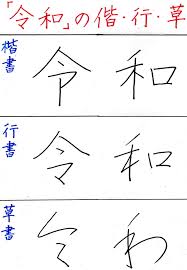 「令和」の楷・行・草
楷書
令和
行書
令和
草書
令和